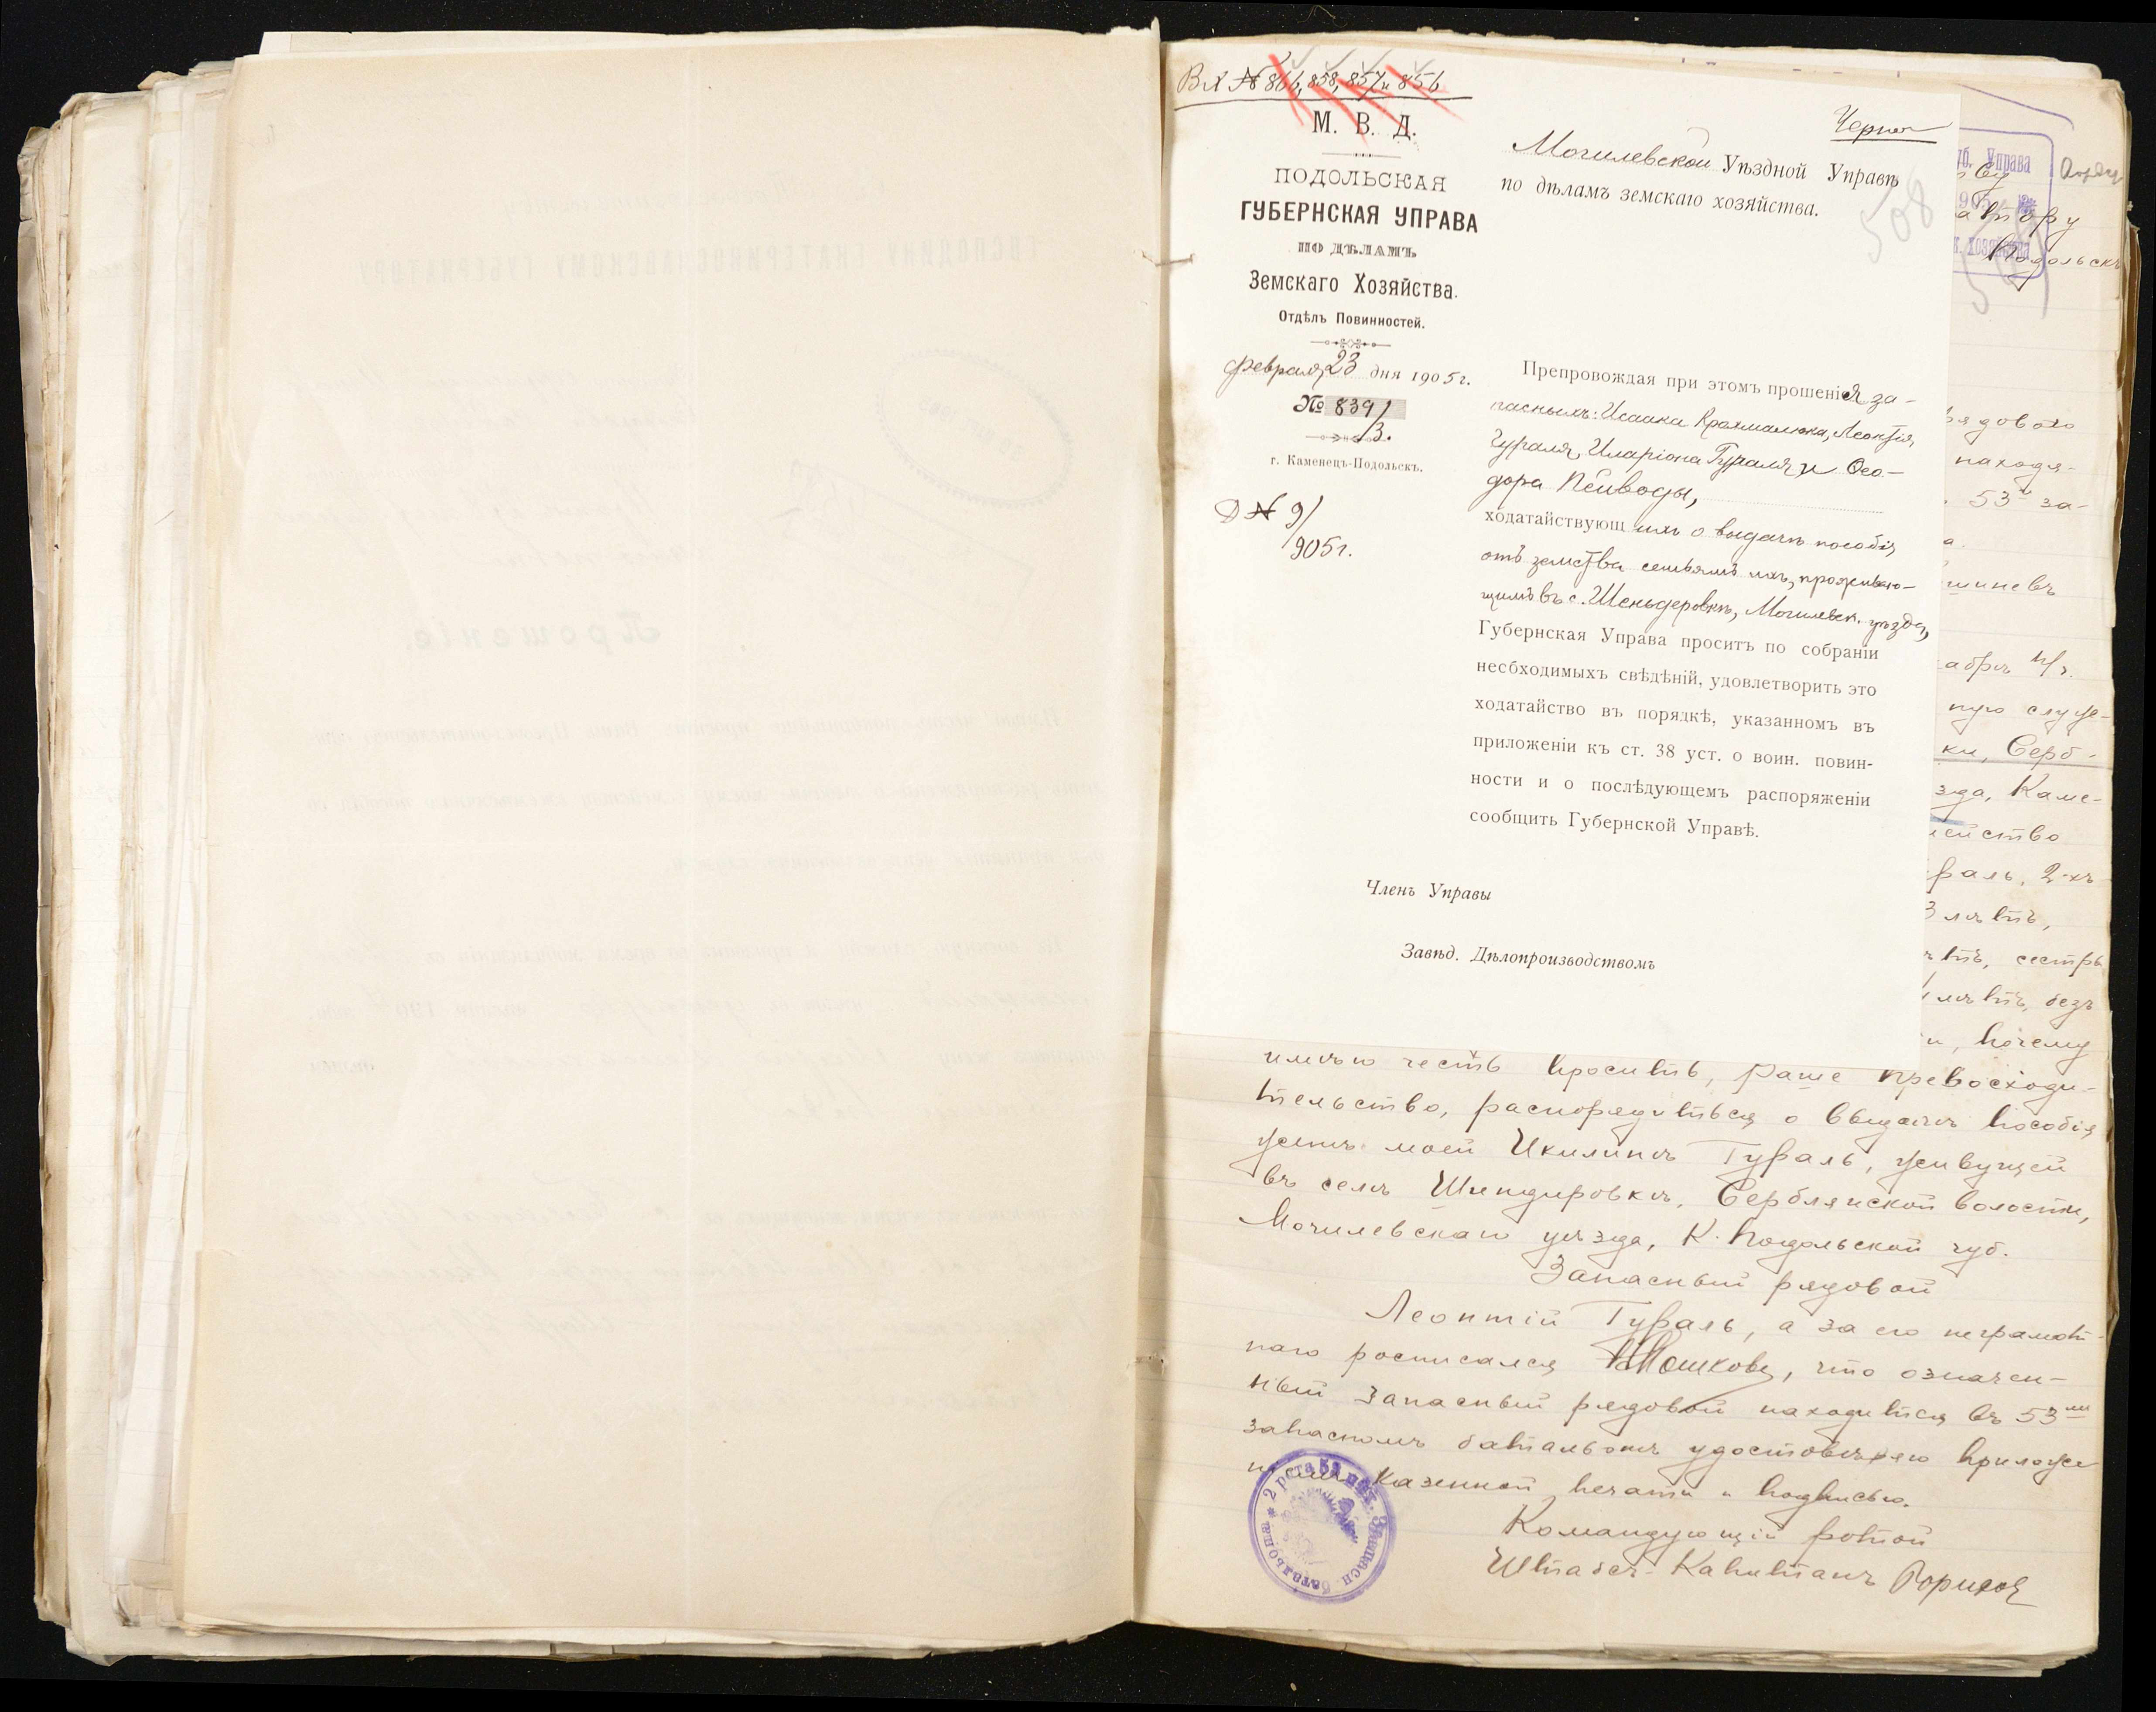 Вх № 866, 858, 857 и 856
М. В. Д.
ПОДОЛЬСКАЯ
ГУБЕРНСКАЯ УПРАВА
ПО ДѢЛАМЪ
Земскаго Хозяйства.
Отдѣлъ Повинностей.
Февраля 23 дня 1905 г.
№ 8391/3.
г. Каменецъ-Подольскъ.
Д № 9/
905 г.
Могилевской Уѣздной Управѣ
по дѣламъ земскаго хозяйства.
508
Препровождая при этомъ прошенія за-
пасныхъ: Исаака Крахмалюка, Леонтія
Гураля, Иларіона Гураля и Ѳео-
дора Пейводы,
ходатайствующихъ о выдачѣ пособія
отъ земства семьямъ ихъ, проживаю-
щимъ въ с. Шендеровкѣ, Могилевск. уѣзда,
Губернская Управа проситъ по собраніи
несбходимыхъ свѣдѣній, удовлетворить это
ходатайство въ порядкѣ, указанномъ въ
приложеніи къ ст. 38 уст. о воин. повин-
ности и о послѣдующемъ распоряженіи
сообщить Губернской Управѣ.
Членъ Управы
Завѣд. Дѣлопроизводствомъ
уб. Управа
905
хозяйства
атору
Подольскъ
рядового
находя-
53й за-
а.
шиневъ
абрѣ н/г.
ную служ-
ки, Серб-
зда, Каме-
ейство
раль, 2-хъ
3 лѣтъ,
ѣтъ, сестры
лѣтъ, безъ
и, почему
имѣю честь просить, Ваше Превосходи-
тельство, распорядиться о выдачѣ пособія
женѣ моей Икилинѣ Гураль, живущей
въ селѣ Шендировкѣ, Серблянской волости,
Могилевскаго уѣзда, К. Подольской губ.
Запасный рядовой
Леонтій Гураль, а за его неграмот-
наго росписался Мошковъ, что означен-
ный запасный рядовой находится въ 53мъ
запасномъ баталіонѣ удостовѣряю приложе
ніемъ казенной печати и подписью.
Командующій ротой
Штабсъ-Капитанъ
2 рота 53 пѣх. Запасн. баталіона